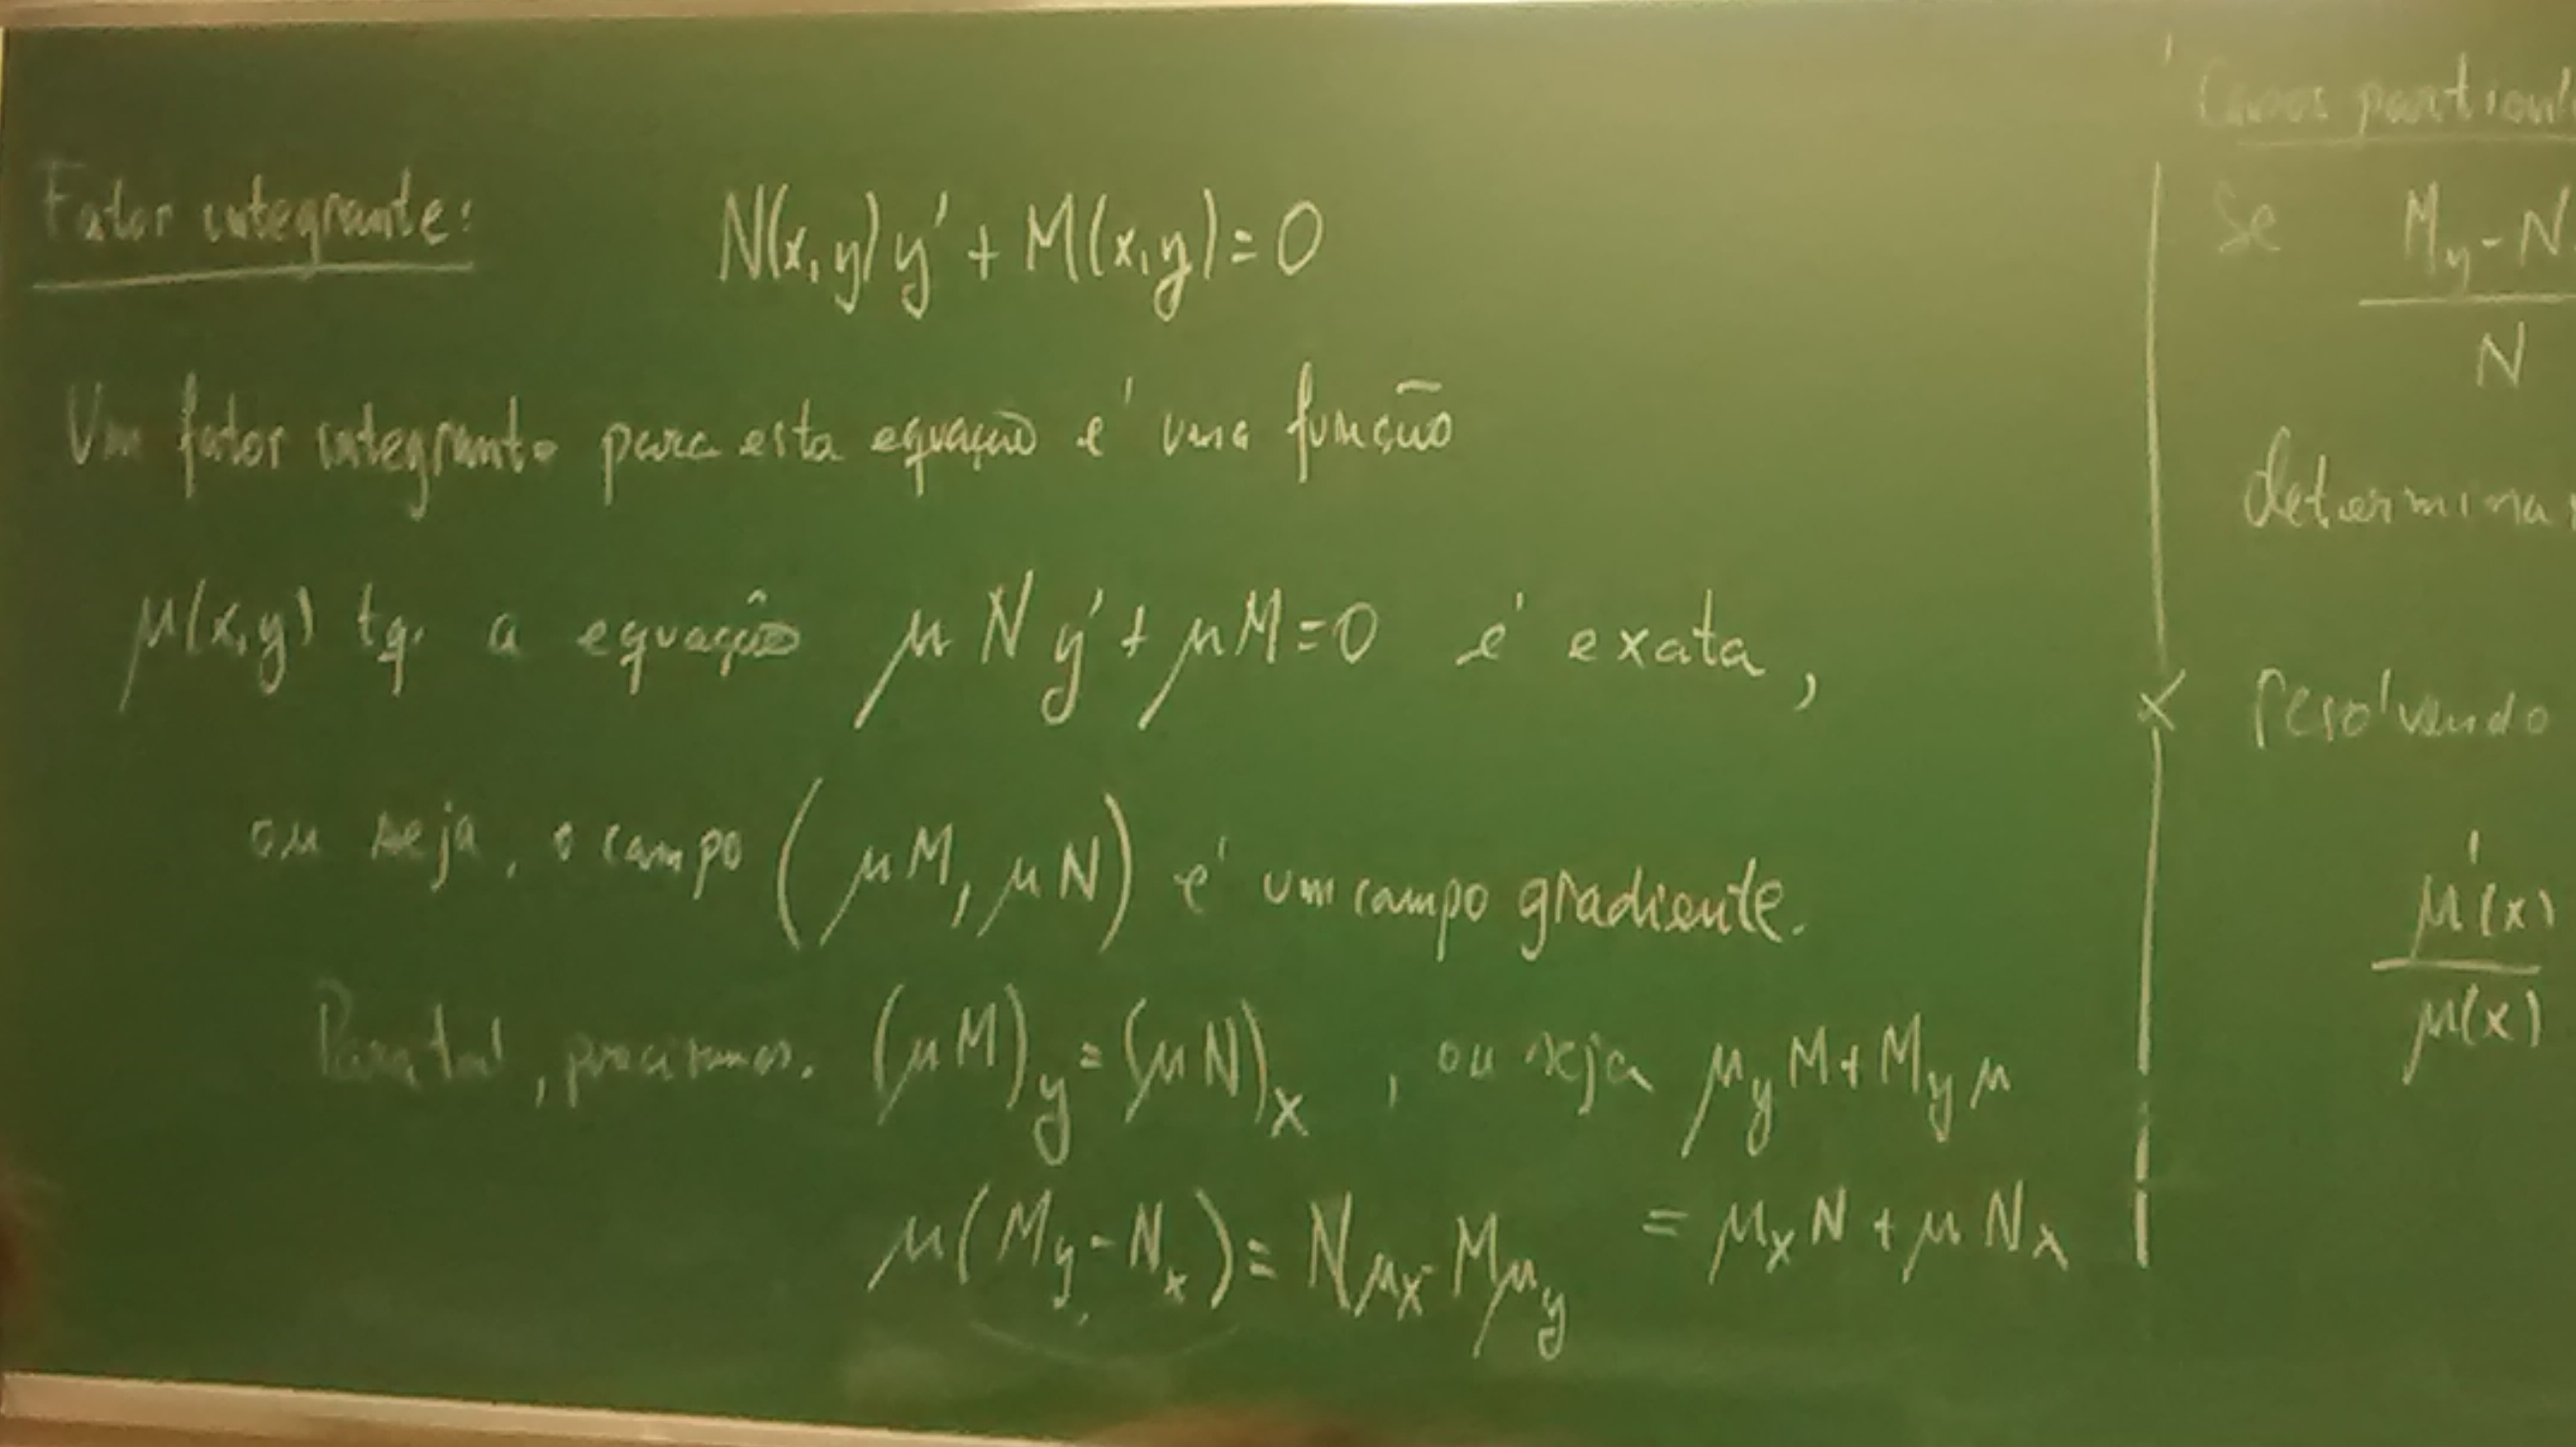 Fator integrante: N(x,y) y' + M(x,y) = 0
Um fator integrante para esta equação é uma função
μ(x,y) tq. a equação μ N y' + μM = 0 é exata,
ou seja, o campo (μM, μN) é um campo gradiente.
Para tal, precisamos. (μM)y = (μN)x , ou seja μy M + My μ
= μx N + μ Nx
μ(My - Nx) = Nμx - Mμy
Casos particul
Se My - N
N
determina
resolvendo
μ'(x)
μ(x)